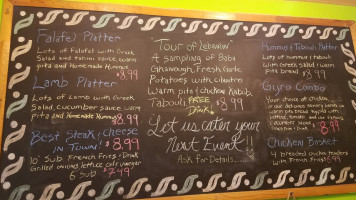 Falafel Platter
Lots of Falafel with Greek
Salad and tahini sauce, warm
pita and Homemade Hummus
$8.99
Lamb Platter
Lots of Lamb with Greek
Salad, cucumber sauce, warm
pita and Homemade Hummus
$8.99
Best Steak & Cheese
in Town!
$8.99
10" Sub French Fries & Drink
Grilled onions lettuce
6" Sub $7.49
"Tour of Lebanon"
A sampling of Baba
Ghanough, Fresh Garlic
Potatoes with cilantro
Warm pita & chicken Kabob,
Tabouli FREE Drink
$8.99
Let us cater your
Next Event!!
Ask for Details
Hummus & Tabouli Platter
Lots of hummus & tabouli
with Greek salad & warm
pita bread $8.99
Gyro Combo
Your choice of Chicken,
$8.99
Chicken Basket
4 breaded chicken tenders
with French Fries $6.99